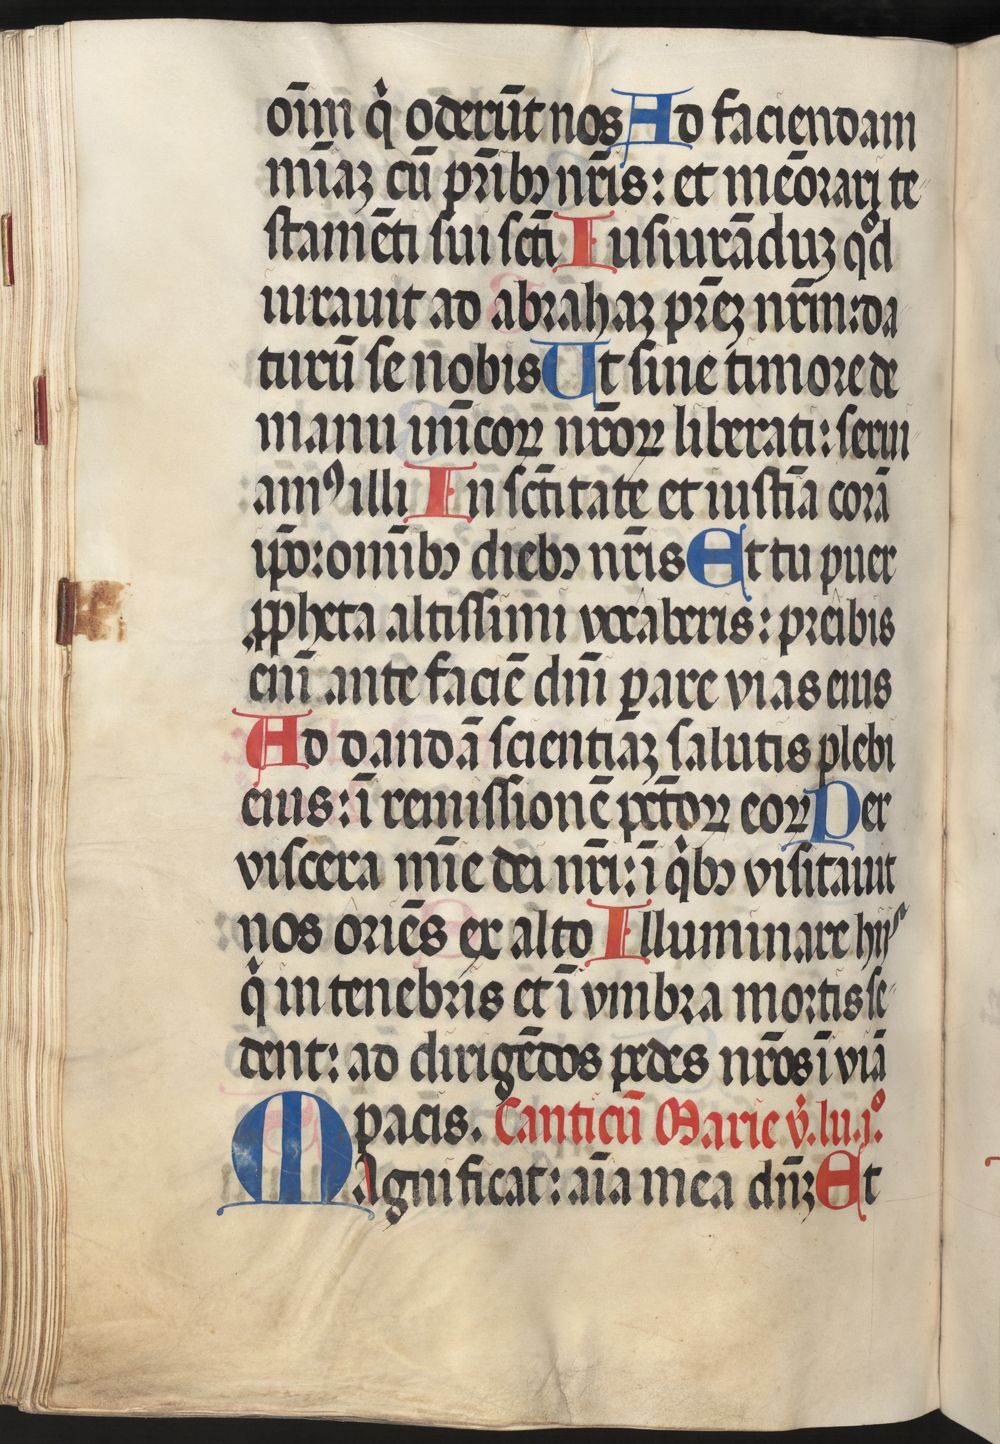 oīm q̇ oderūt nos Ad faciendam
mīaꝫ cū pr̄ibꝫ nr̄is: et mēorarj te
stamēti sui scti Iusiurāduꝫ qd
iurauit ad abrahaꝫ pr̄eꝫ nr̄m: da
turū se nobis Ut sine timore de
manu inīcoꝝ nr̄oꝝ liberati: serui
amꝰ illi In sctitate et iustīa corā
ip̄o: omībꝫ diebꝫ nr̄is Et tu puer
ꝓpheta altissimi vocaberis: preibis
enī ante faciē dnī ꝑare vias eius
Ad dandā scientiaꝫ salutis plebi
eius: ī remissionē pctoꝝ eoꝝ Per
viscera mīe dei nr̄i: ī q̇bꝫ visitauit
nos oriēs ex alto Illuminare hijs
q̇ in tenebris et ī vmbra mortis se
dent: ad dirigēdos pedes nr̄os ī viā
pacis. Canticū Marie v̇. lu. jº.
Magnificat: aīa mea dnꝫ Et